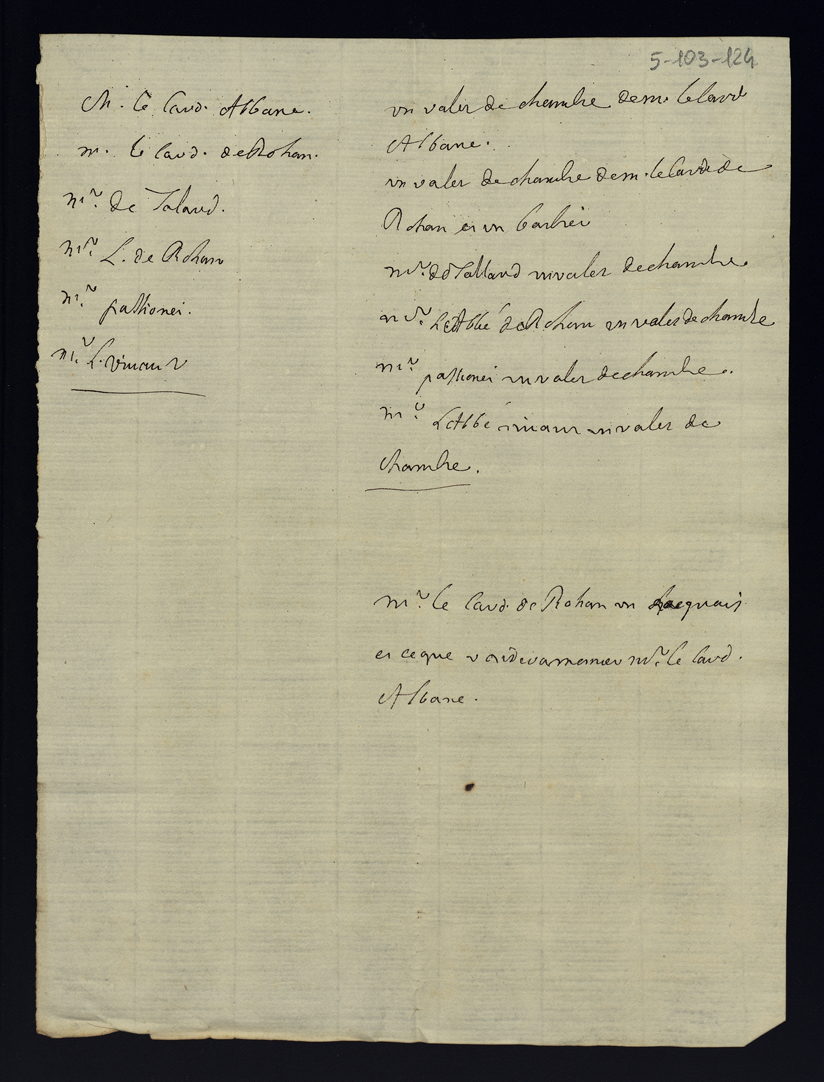 5-103-124
M. le Card. Albane.
m. le Card. de Rohan.
mr. de Talard.
mr. L. de Rohan
mr. passionei.
mr. L. vivant
un valet de chambre de m. le Card
Albane.
un valet de chambre de m. le Card de
Rohan et un barbier
mr. de Tallard un valet de chambre
mr. L'Abbé de Rohan un valet de chambre
mr. passionei un valet de chambre.
mr. L'Abbé vivant un valet de
chambre.
mr. le Card. de Rohan un lacquais
et ce que mr. le Card.
Albane.